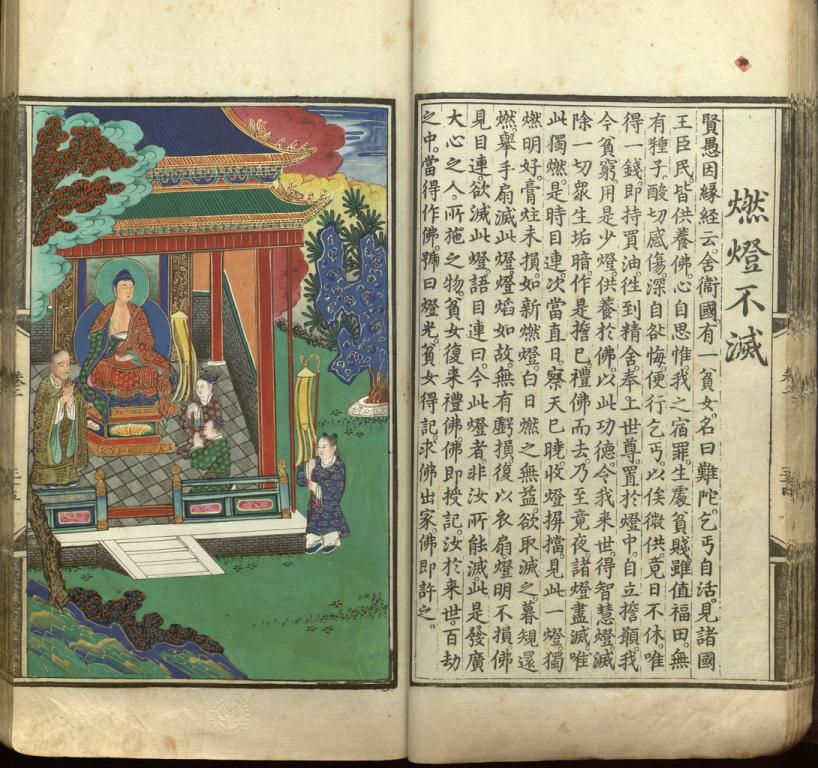 燃燈不滅
賢愚因緣經云。舍衞國有一貧女。名曰難陀。乞丐自活。見諸國
王臣民。皆供養佛。心自思惟。我之宿罪。生處貧賤。雖值福田。無
有種子。酸切感傷。深自咎悔。便行乞丐。以俟微供。竟日不休。唯
得一錢。即持買油。徃到精舍。奉上世尊。置於燈中。自立擔願。我
今貧窮。用是少燈。供養於佛。以此功德。令我来世。得智慧燈。滅
除一切衆生垢暗。作是擔已。禮佛而去。乃至竟夜。諸燈盡滅。唯
此獨燃。是時目連。次當直日。察天已曉。收燈摒擋。見此一燈。獨
燃明好。膏炷未損。如新燃燈。白日燃之無益。欲取滅之。暮䂓還
燃。舉手扇滅此燈。燈焰如故。無有虧損。復以衣扇。燈明不損。佛
見目連。欲滅此燈。語目連曰。今此燈者。非汝所能滅。此是發廣
大心之人。所施之物。貧女復来禮佛。佛即授記。汝於来世。百劫
之中。當得作佛。號曰燈光。貧女得記。求佛出家。佛即許之。